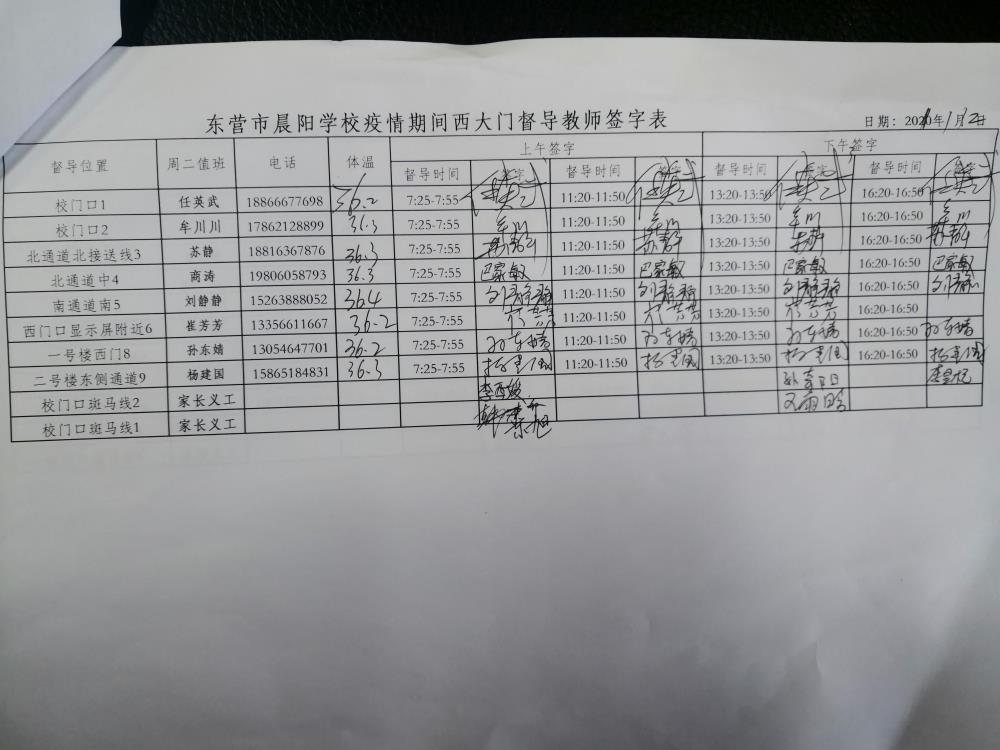 东营市晨阳学校疫情期间西大门督导教师签字表
日期: 202 年1月2
督导位置 周二值班 电话 体温 上午签字 下午签字
督导时间 签字 督导时间 签字 督导时间 签字 督导时间 签字
校门口1 任英武 18866677698 36.2 7:25-7:55 11:20-11:50 13:20-13:50 16:20-16:50
校门口2 牟川川 17862128899 36.3 7:25-7:55 牟川 11:20-11:50 牟川 13:20-13:50 牟川 16:20-16:50 牟川
北通道北接送线3 苏静 18816367876 36.3 7:25-7:55 苏静 11:20-11:50 苏静 13:20-13:50 苏静 16:20-16:50 苏静
北通道中4 商涛 19806058793 36.3 7:25-7:55 巴家敏 11:20-11:50 巴家敏 13:20-13:50 巴家敏 16:20-16:50 巴家敏
南通道南5 刘静静 15263888052 364 7:25-7:55 刘静静 11:20-11:50 刘静静 13:20-13:50 刘静静 16:20-16:50 刘静
西门口显示屏附近6 崔芳芳 13356611667 36-2 7:25-7:55 崔芳芳 11:20-11:50 崔芳芳 13:20-13:50 崔芳芳 16:20-16:50
一号楼西门8 孙东婧 13054647701 36.2 7:25-7:55 孙东婧 11:20-11:50 孙东婧 13:20-13:50 孙东婧 16:20-16:50 孙东婧
二号楼东侧通道9 杨建国 15865184831 36.3 7:25-7:55 杨建国 11:20-11:50 杨建国 13:20-13:50 杨建国 16:20-16:50 杨建国
校门口斑马线2 家长义工
校门口斑马线1 家长义工